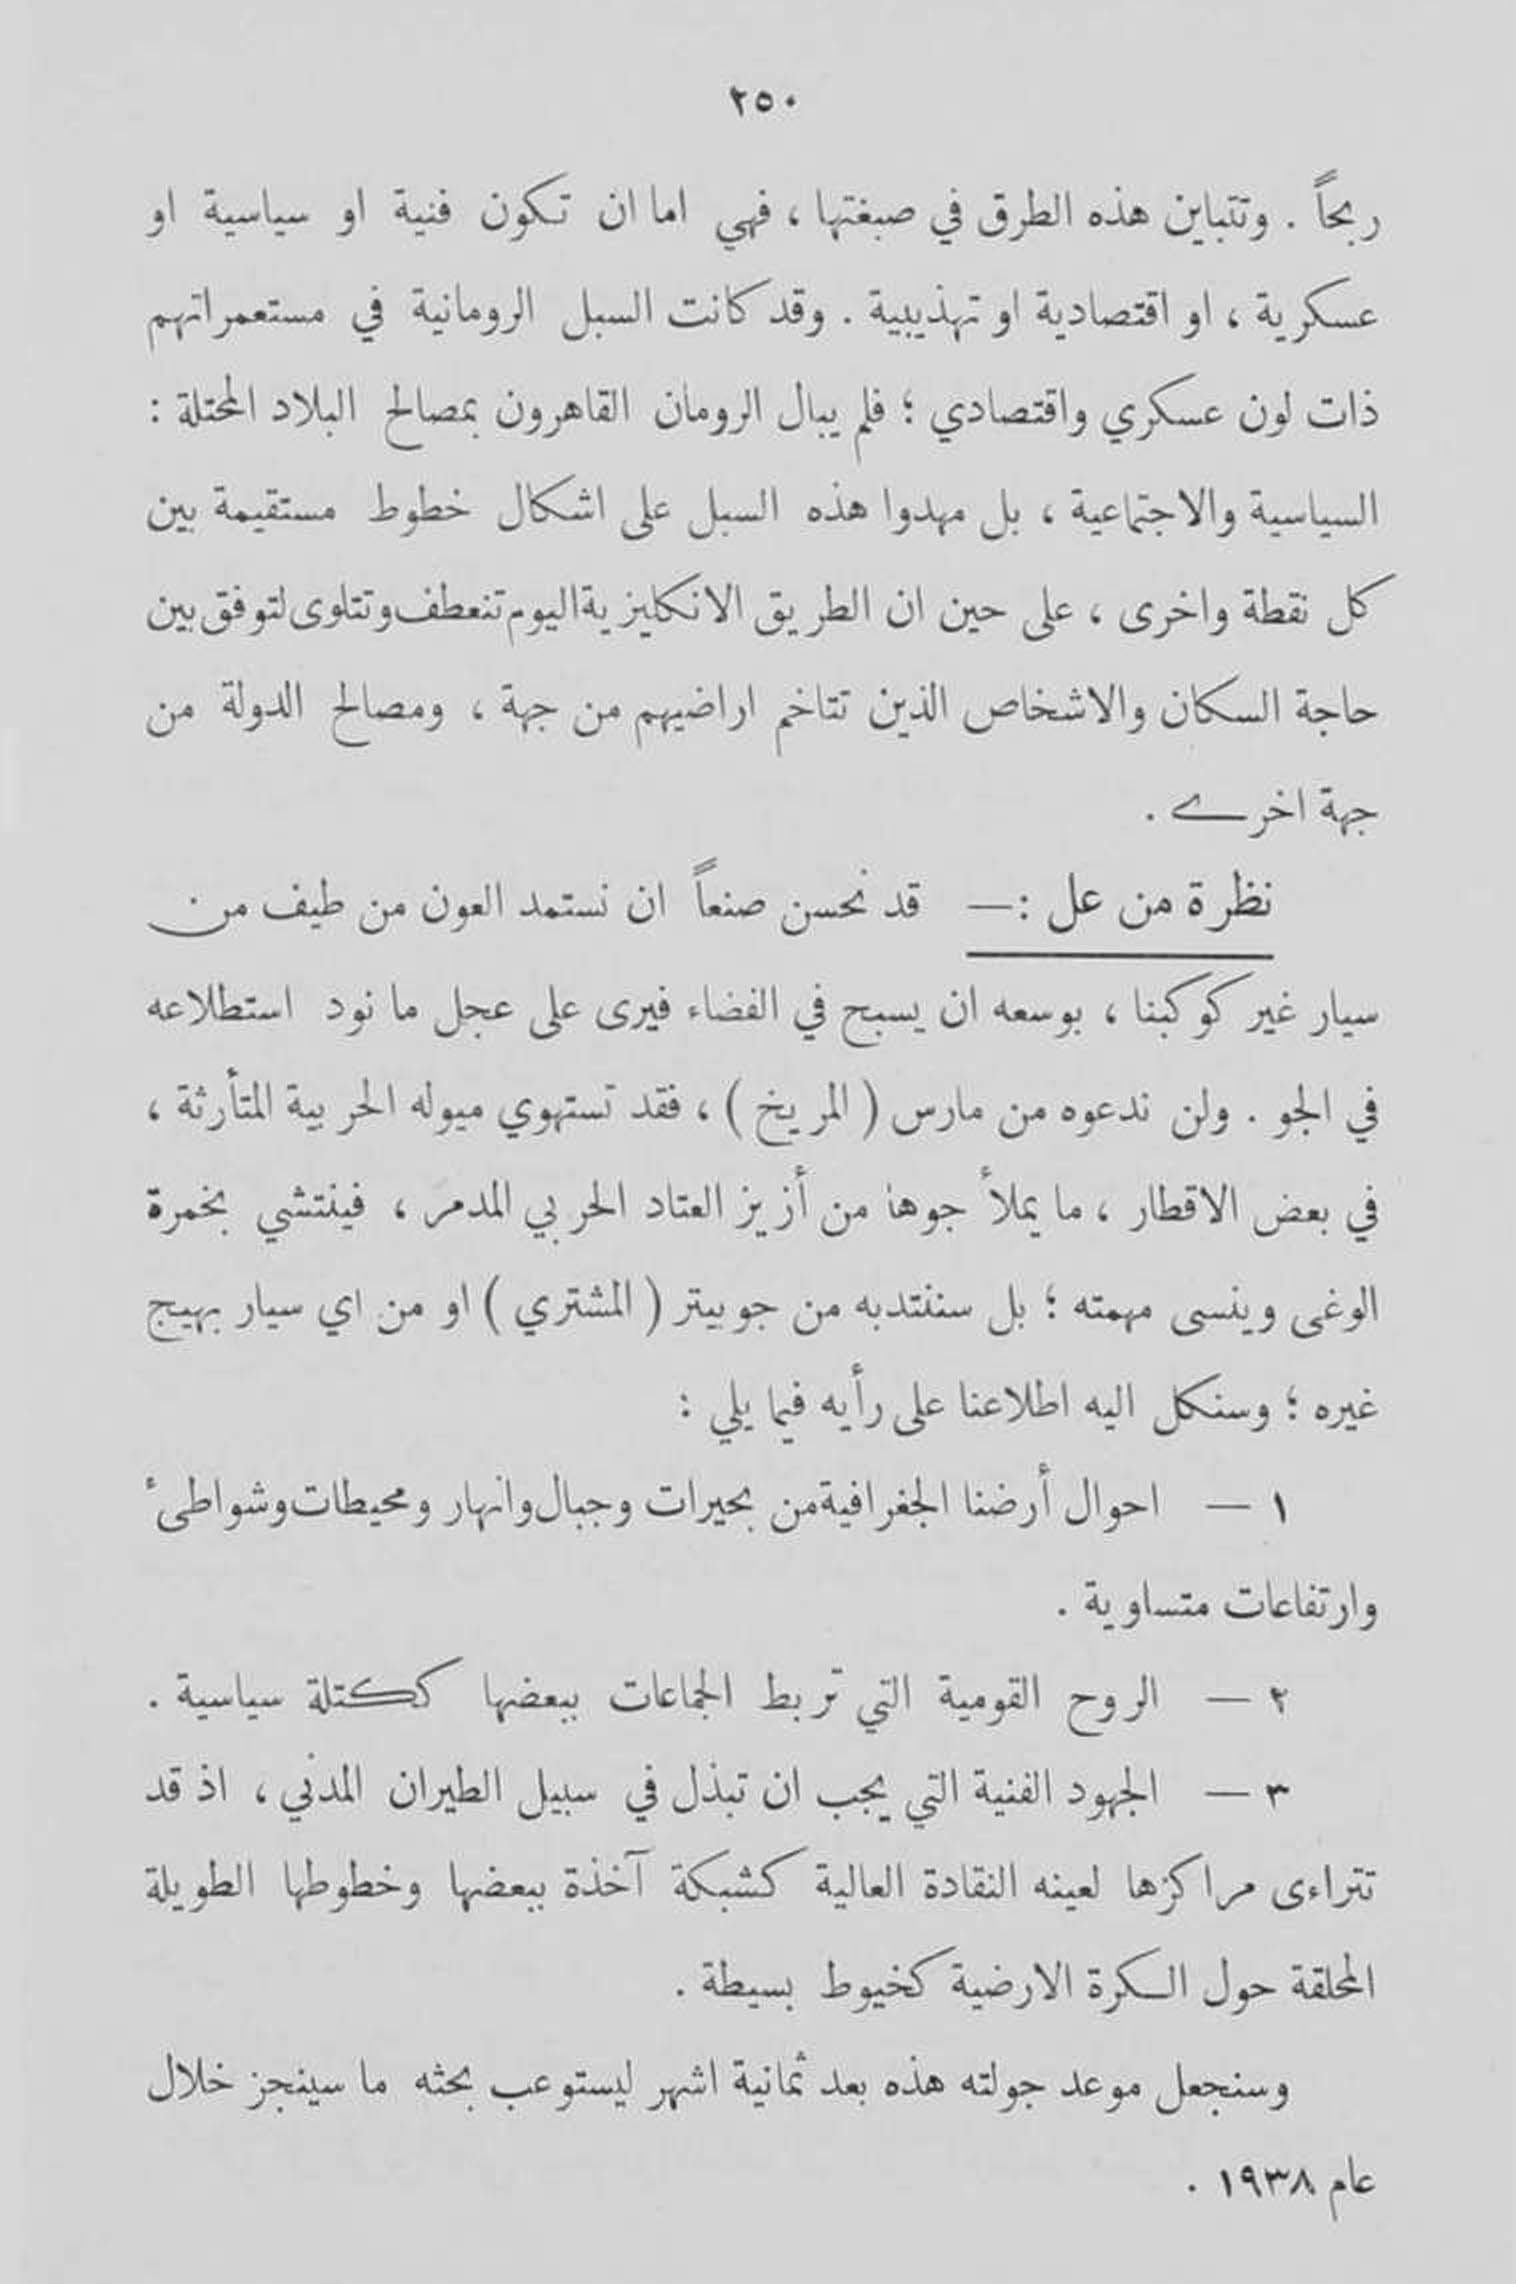 ٢٥٠
ربحاً . وتتباين هذه الطرق في صبغتها ، فهي اما ان تكون فنية او سياسية او
عسكرية ، او اقتصادية او تهذيبية . وقد كانت السبل الرومانية في مستعمراتهم
ذات لون عسكري واقتصادي ؛ فلم يبال الرومان القاهرون بمصالح البلاد المحتلة :
السياسية والاجتماعية ، بل مهدوا هذه السبل على اشكال خطوط مستقيمة بين
كل نقطة واخرى ، على حين ان الطريق الانكليزية اليوم تنعطف وتتلوى لتوفق بين
حاجة السكان والاشخاص الذين تتاخم اراضيهم من جهة ، ومصالح الدولة من
جهة اخرى .
نظرة من عل :— قد نحسن صنعاً ان نستمد العون من طيف من
سيار غير كوكبنا ، بوسعه ان يسبح في الفضاء فيرى على عجل ما نود استطلاعه
في الجو . ولن ندعوه من مارس ( المريخ ) ، فقد تستهوي ميوله الحربية المتأرثة ،
في بعض الاقطار ، ما يملأ جوها من أزيز العتاد الحربي المدمر ، فينتشي بخمرة
الوغى وينسى مهمته ؛ بل سننتدبه من جوبيتر ( المشتري ) او من اي سيار بهيج
غيره ؛ وسنكل اليه اطلاعنا على رأيه فيما يلي :
١ — احوال أرضنا الجغرافية من بحيرات وجبال وانهار ومحيطات وشواطىء
وارتفاعات متساوية .
٢ — الروح القومية التي تربط الجماعات ببعضها ككتلة سياسية .
٣ — الجهود الفنية التي يجب ان تبذل في سبيل الطيران المدني ، اذ قد
تتراءى مراكزها لعينه النقادة العالية كشبكة آخذة ببعضها وخطوطها الطويلة
المحلقة حول الكرة الارضية كخيوط بسيطة .
وسنجعل موعد جولته هذه بعد ثمانية اشهر ليستوعب بحثه ما سينجز خلال
عام ١٩٣٨ .